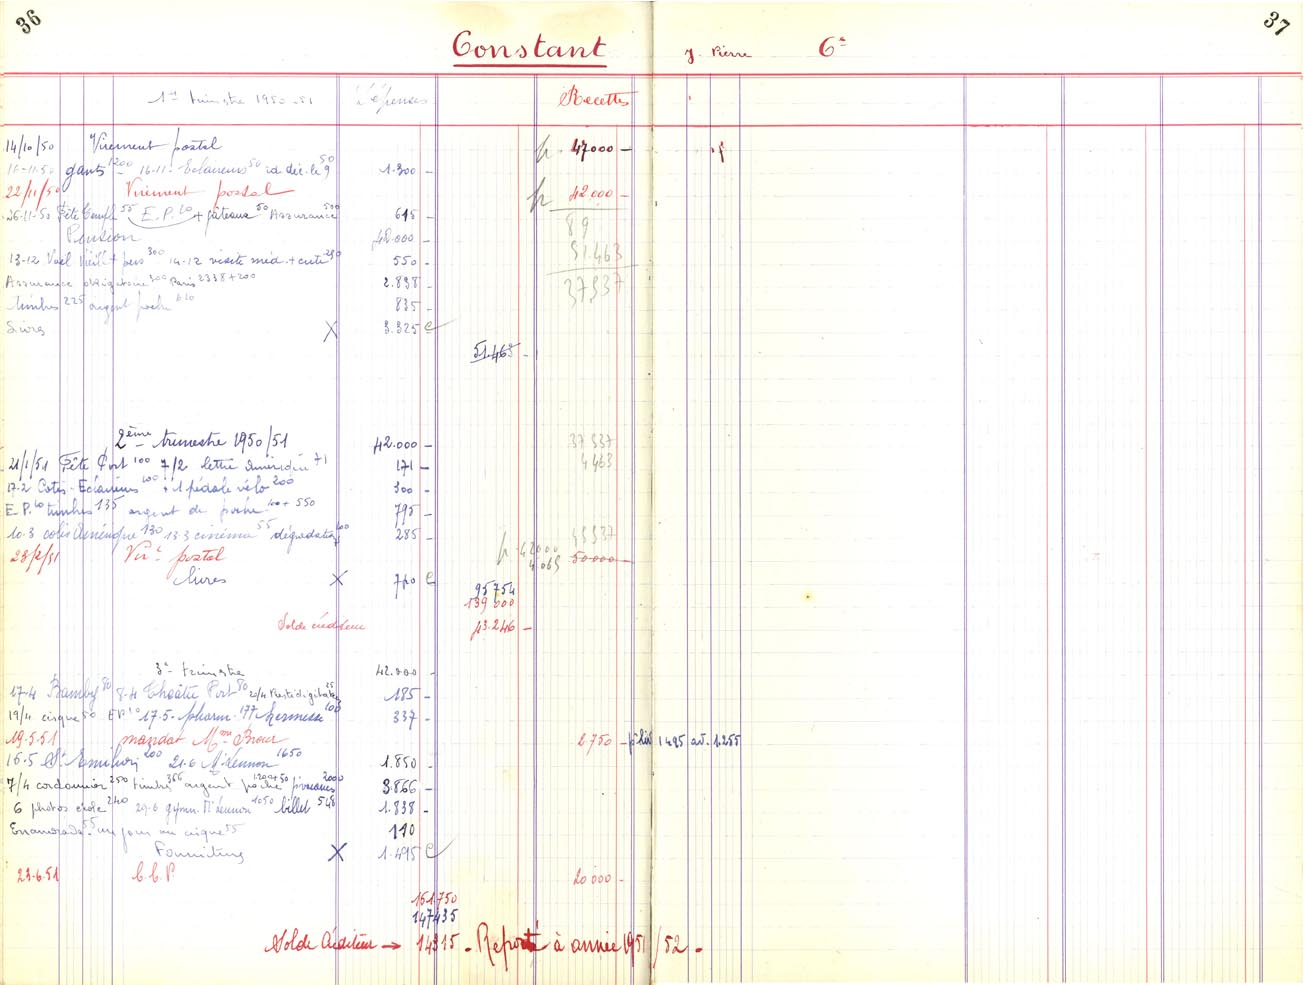 36
37
Constant J. Pierre 6e
1er trimestre 1950-51 Dépenses Recettes
14/10/50 Virement postal 47000 -
16-11-50 gants 1200 16-11 Eclaireurs 50 1.300 -
22/11/50 Virement postal 42.000 -
26-11-50 Fête 55 E.P. 10 + gâteaux 50 Assurance 500 615 -
89
Pension 42.000 -
51.463
13-12 300 14-12 visite méd. + cuti 250 550 -
Assurance obligatoire 300 Paris 2338+200 2.838 -
37537
timbres 225 argent poche 610 835 -
Livres X 3.325 e
51.463 -
2ème trimestre 1950/51 42.000 - 37537
21/1/51 Fête Port 100 7/2 lettre 71 171 - 4463
17-2 Cotis. Eclaireurs 100 + 1 pédale vélo 200 300 -
E.P. 10 timbres 135 argent de poche 100 + 550 795 -
10-3 colis 130 13-3 cinéma 55 dégradation 100 285 -
23/2/51 Virt postal 42000 50.000 -
4065
livres X 740 e
95754
139000
Solde créditeur 43.246 -
3e trimestre 42.000 -
17-4 Bamby 80 8-4 Théâtre Port 80 20/4 Prestidigitateur 25 185 -
19/4 cirque 50 EP 10 17-5 pharm. 177 Kermesse 100 337 -
19.5.51 mandat Mme 2.750 - 1495 1.255
16-5 St Emilion 200 21-6 1650 1.850 -
7/4 cordonnier 250 timbres 366 argent poche 1200+50 2000 3.866 -
6 photos école 240 29-6 gymn. 1050 billet 548 1.838 -
55 un jour au cirque 55 110
Fournitures X 1.495 e
23.6.51 C.C.P. 20 000 -
161750
147435
Solde Créditeur → 14315 - Reporté à année 1951/52 -